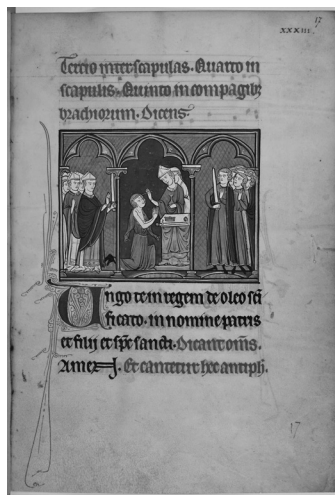 17
XXXIII.
Tercio inter scapulas. Quarto in
scapulis. Quinto in compagibꝫ
brachiorum. Dicens.
Ungo te in regem de oleo sci
ficato. in nomine patris
et filij et spc sancti. Dicant oms.
Amen. Et cantetur hec antiph.
17